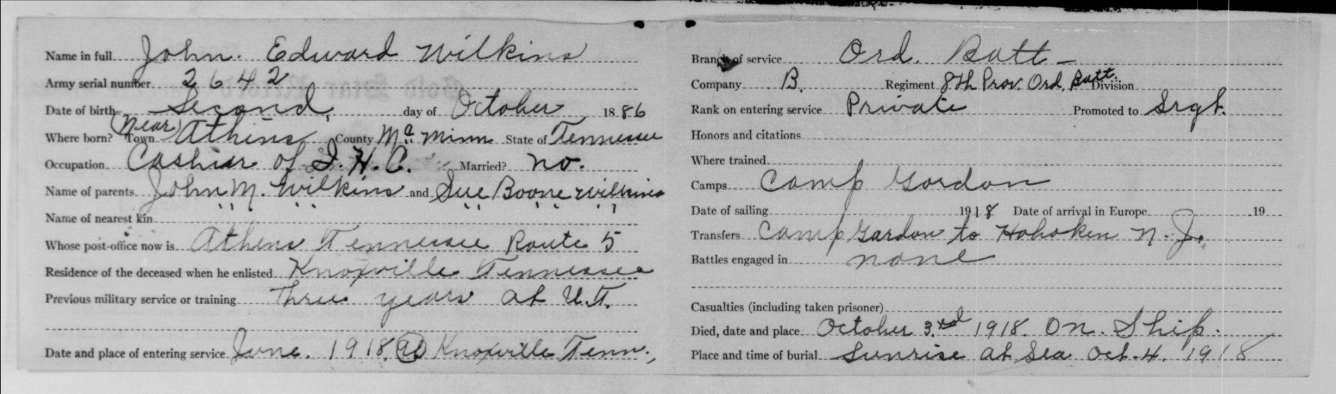 Name in full John Edward Wilkins
Army serial number 2642
Date of birth Second day of October 1886
Where born? (Near) Town Athens County McMinn State of Tennessee
Occupation Cashier of I. H. C. Married? no.
Name of parents John M. Wilkins and Sue Boone Wilkins
Name of nearest kin " " " " " "
Whose post-office now is Athens Tennessee Route 5
Residence of the deceased when he enlisted Knoxville Tennessee
Previous military service or training three years at U.T.
Date and place of entering service June. 1918 at Knoxville Tenn.,
Branch of service Ord. Batt-
Company B. Regiment 8th Prov. Ord. Batt. Division
Rank on entering service Private Promoted to Srgt.
Honors and citations
Where trained
Camps Camp Gordon
Date of sailing 1918 Date of arrival in Europe 19
Transfers Camp Gordon to Hoboken N. J.
Battles engaged in none
Casualties (including taken prisoner)
Died, date and place October 3rd 1918. On. Ship.
Place and time of burial Sunrise at Sea Oct. 4. 1918